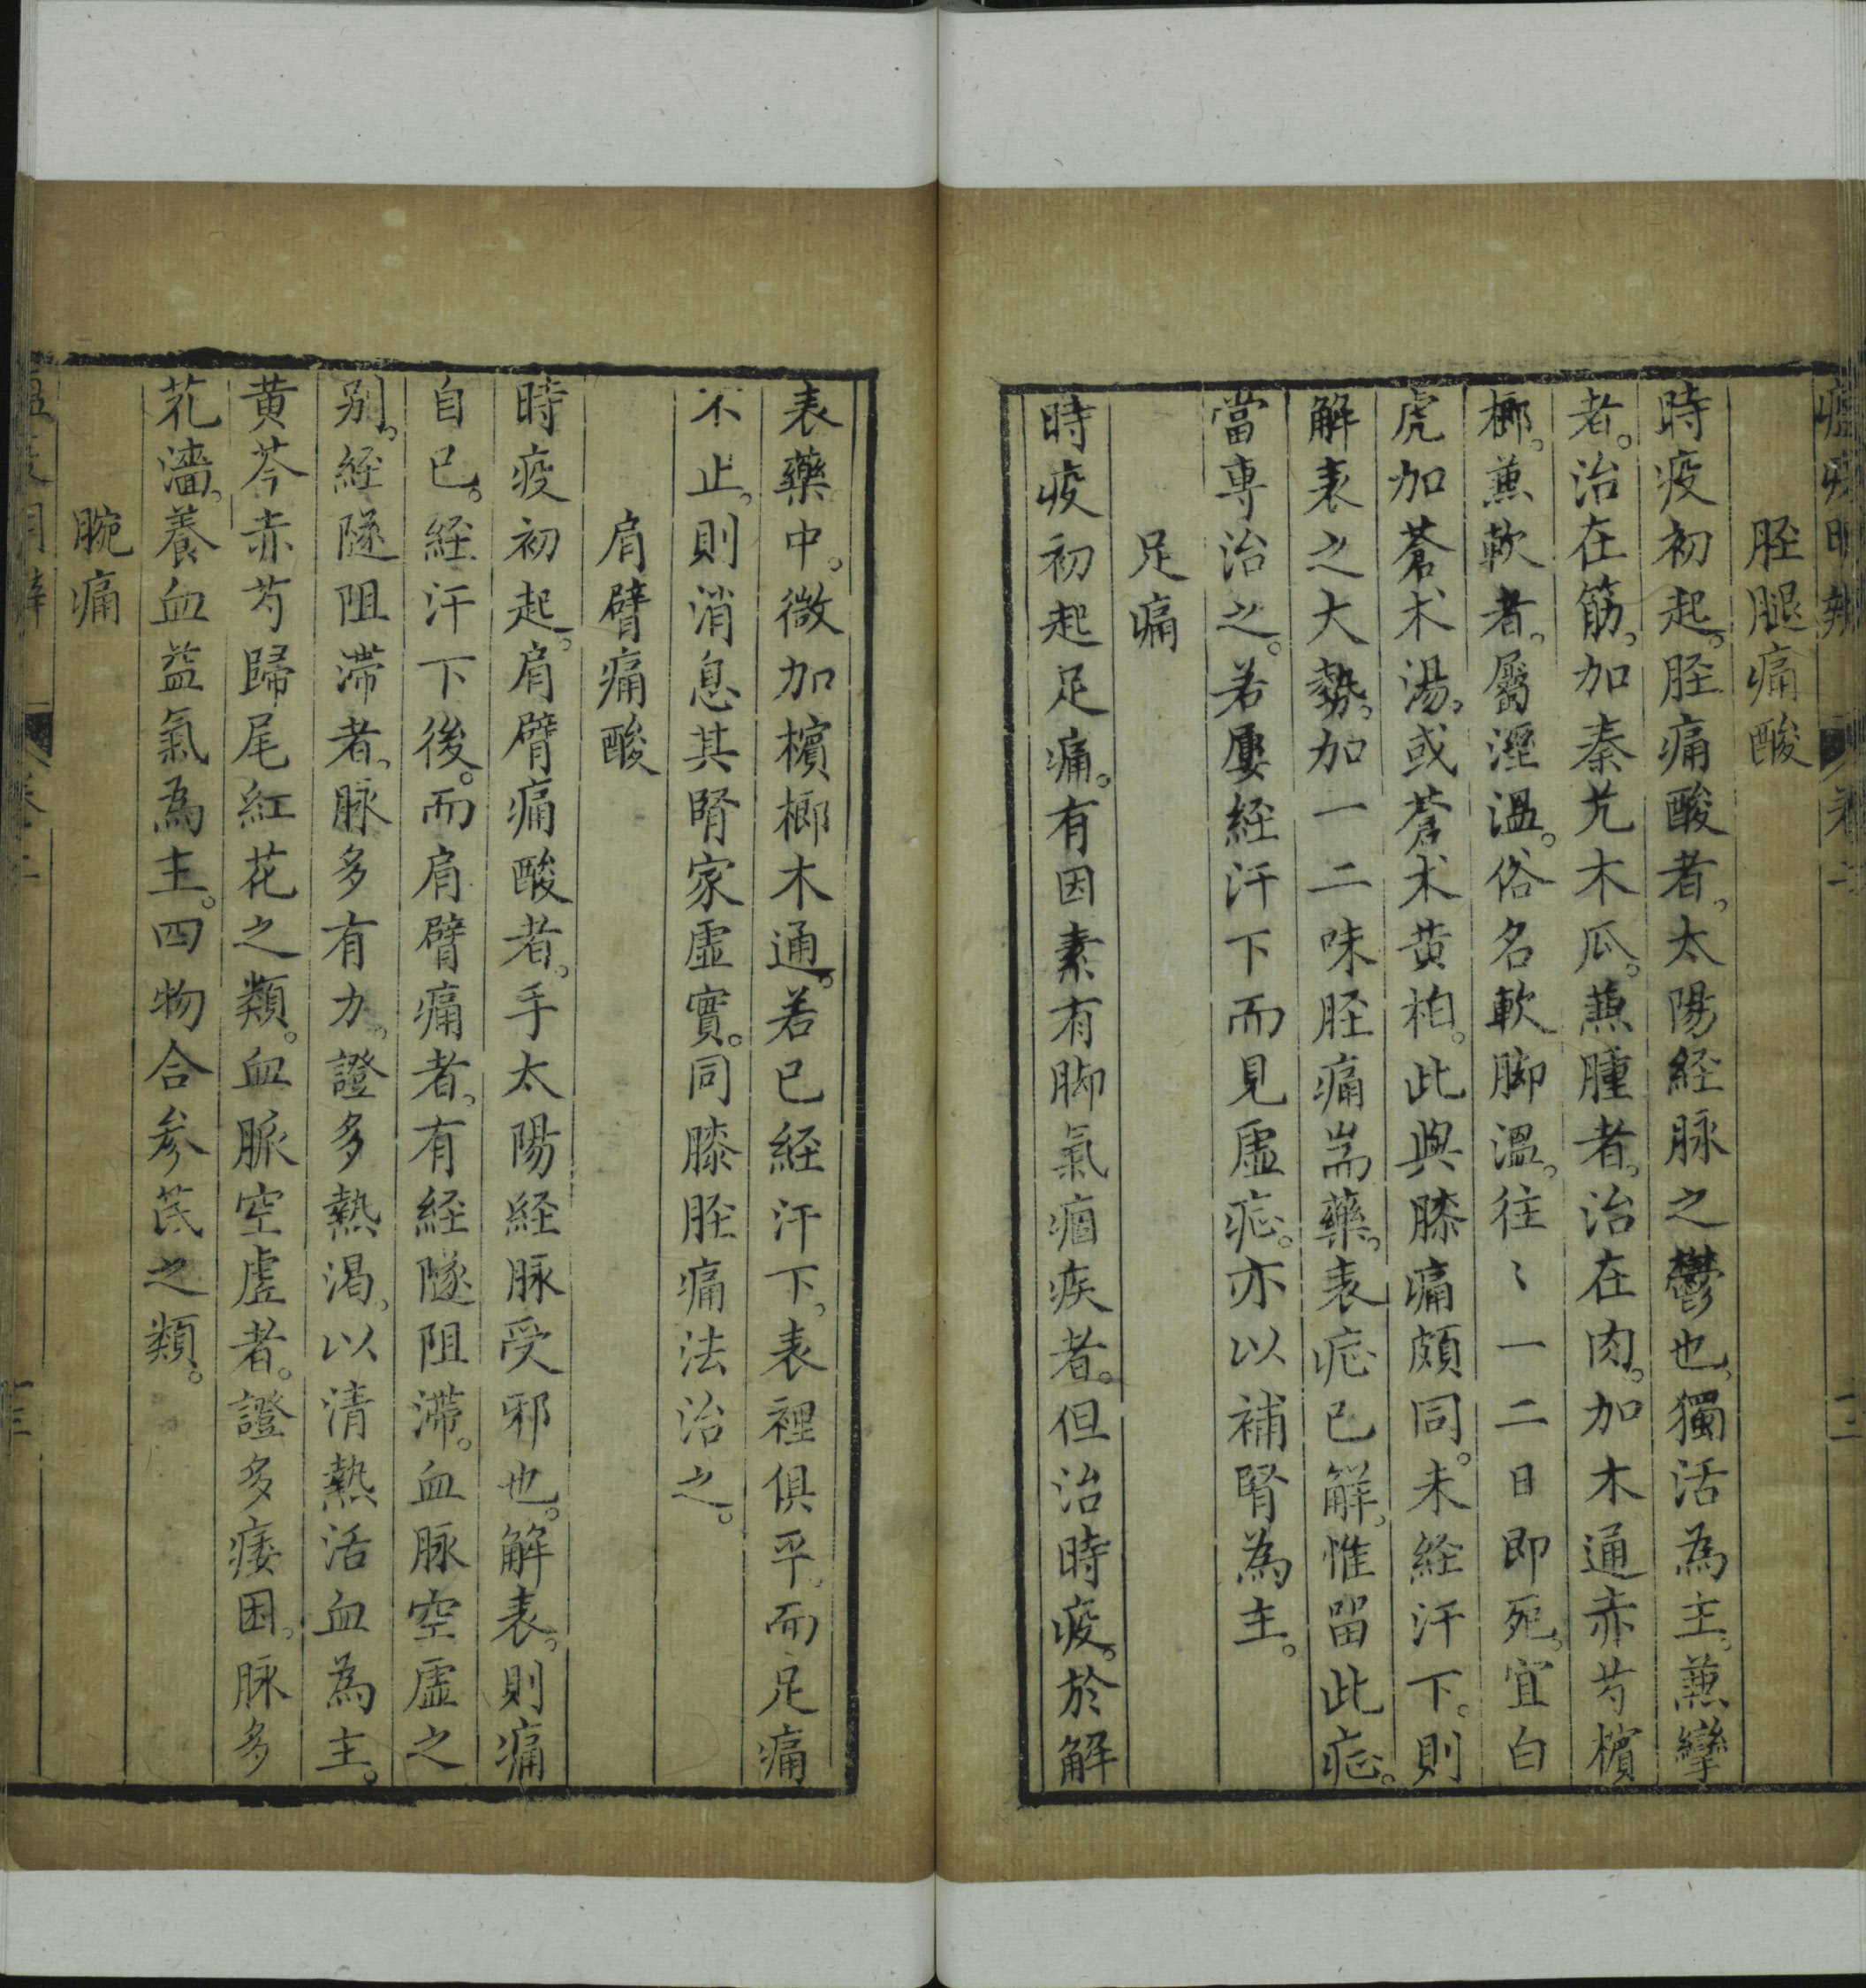 胫腿痛酸
時疫初起。胫痛酸者。太陽経脉之鬱也。獨活為主。蕉攣
者。治在筋。加秦艽木瓜。蕉腫者。治在肉。加木通赤芍檳
榔。蕉軟者。屬溼溫。俗名軟脚溫。往〻一二日即死。宜白
虎加蒼术湯。或蒼术黄柏。此與膝痛頗同。未経汗下。則
解表之大勢。加一二味胫痛耑藥。表症已解。惟留此症。
當専治之。若屢経汗下而見虛症。亦以補腎為主。
足痛
時疫初起足痛。有因素有脚氣痼疾者。但治時疫。於解
表藥中。微加檳榔木通。若已経汗下。表裡俱平。而足痛
不止。則消息其腎家虛實。同膝胫痛法治之。
肩臂痛酸
時疫初起。肩臂痛酸者。手太陽経脉受邪也。解表。則痛
自已。経汗下後。而肩臂痛者。有経隧阻滯。血脉空虛之
别。経隧阻滯者。脉多有力。證多熱渴。以清熱活血為主。
黄芩赤芍歸尾紅花之類。血脈空虛者。證多痿困。脉多
芤濇。養血益氣為主。四物合参芪之類。
腕痛